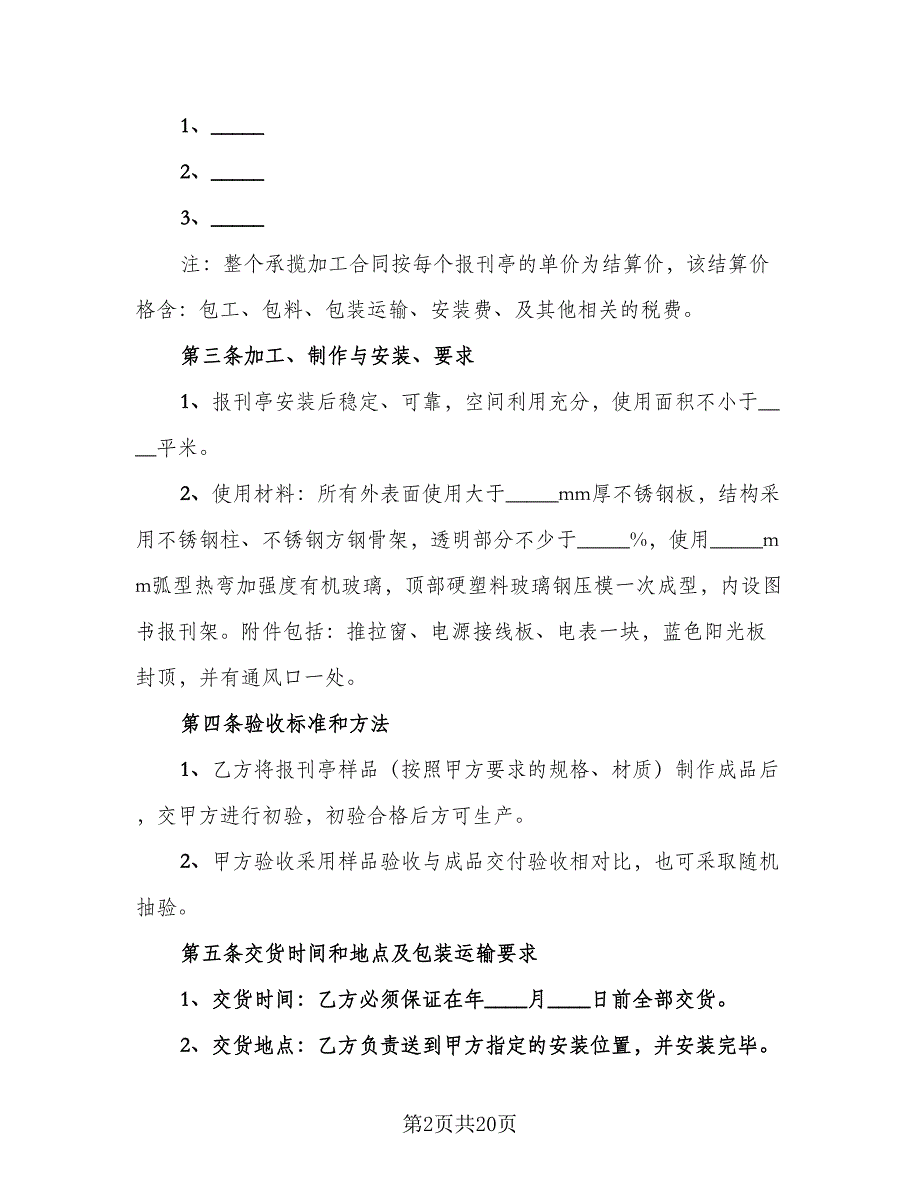 1、_____
2、_____
3、_____
注：整个承揽加工合同按每个报刊亭的单价为结算价，该结算价
格含：包工、包料、包装运输、安装费、及其他相关的税费。
第三条加工、制作与安装、要求
1、报刊亭安装后稳定、可靠，空间利用充分，使用面积不小于__
__平米。
2、使用材料：所有外表面使用大于_____mm厚不锈钢板，结构采
用不锈钢柱、不锈钢方钢骨架，透明部分不少于_____%，使用_____m
m弧型热弯加强度有机玻璃，顶部硬塑料玻璃钢压模一次成型，内设图
书报刊架。附件包括：推拉窗、电源接线板、电表一块，蓝色阳光板
封顶，并有通风口一处。
第四条验收标准和方法
1、乙方将报刊亭样品（按照甲方要求的规格、材质）制作成品后
，交甲方进行初验，初验合格后方可生产。
2、甲方验收采用样品验收与成品交付验收相对比，也可采取随机
抽验。
第五条交货时间和地点及包装运输要求
1、交货时间：乙方必须保证在年____月____日前全部交货。
2、交货地点：乙方负责送到甲方指定的安装位置，并安装完毕。
第2页共20页